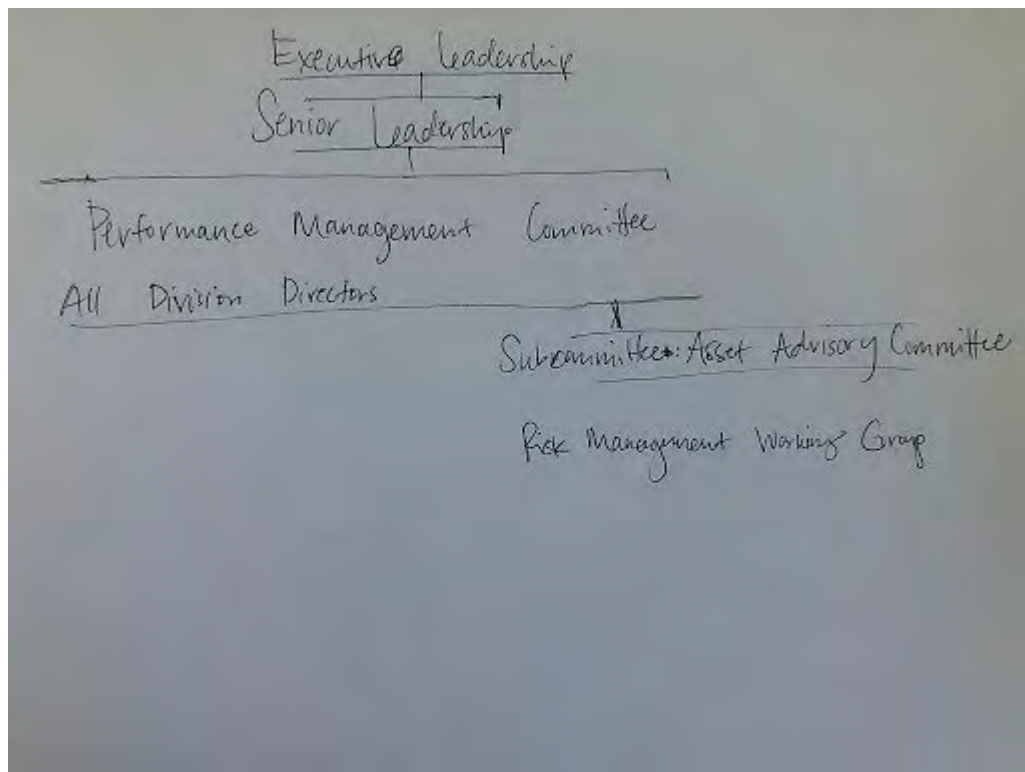 Executive Leadership
Senior Leadership
Performance Management Committee
All Division Directors
Subcommittee: Asset Advisory Committee
Risk Management Working Group